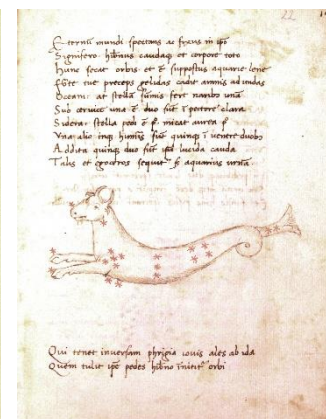 Eternū mundi spectans ac in ipō
Signifero hibnus caudaq; et corpore toto
Hunc secat orbis et ē suppositus aquarie lene
Fōte tue preceps gelidas cadit amnis ad undas
Oceani. at stellā sumis fert naribo una
Sub cervice una ē duo sūt ī pectore clara
Sidera. stella pede ē micat aurea
Vna alio quinq; ī ventre
Addita quinq; duo sūt ipā lucida cauda
Talis et egoceros sequit aquarius urna.
Qui tenet inversam phrigia iovis ales ab ida
Quem tulit ipē pedes hībno inicit orbi